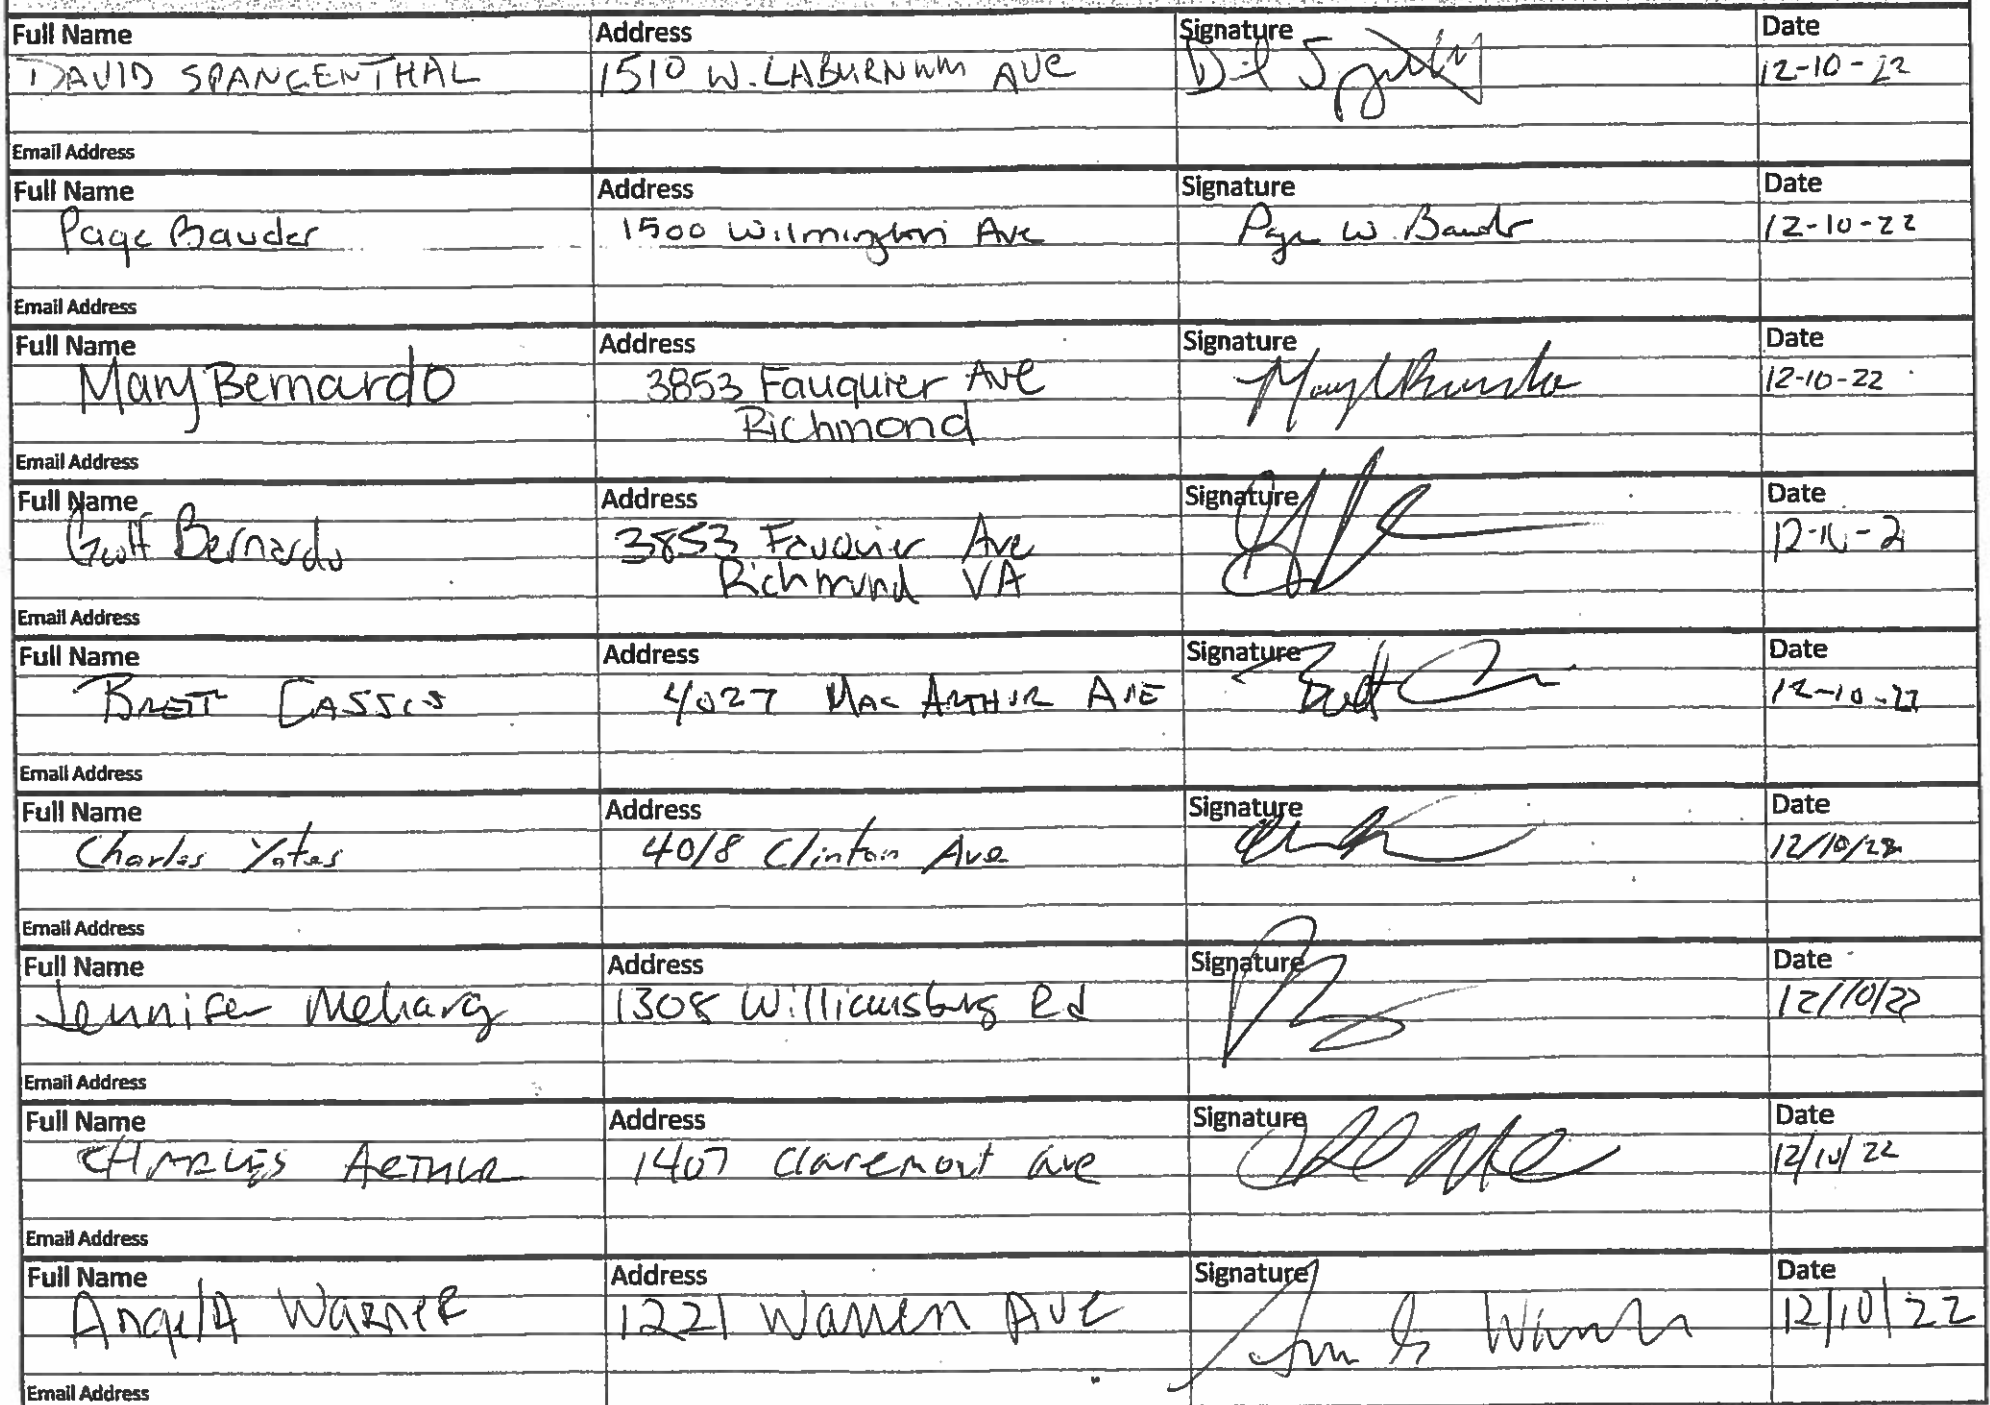 Full Name Address Signature Date
DAVID SPANGENTHAL 1510 W. LABURNUM AVE 12-10-22
Email Address
Full Name Address Signature Date
Page Bauder 1500 Wilmington Ave Page W. Bauder 12-10-22
Email Address
Full Name Address Signature Date
Mary Bernardo 3853 Fauquier Ave 12-10-22
Richmond
Email Address
Full Name Address Signature Date
Geoff Bernardo 3853 Fauquier Ave
Richmond VA
Email Address
Full Name Address Signature Date
BRETT 4027 MAC ARTHUR AVE Brett 12-10-22
Email Address
Full Name Address Signature Date
Charles Yates 4018 Clinton Ave 12/10/22
Email Address
Full Name Address Signature Date
Jennifer Meharg 1308 Williamsburg Rd 12/10/22
Email Address
Full Name Address Signature Date
CHARLES ARTHUR 1407 Claremont Ave 12/10/22
Email Address
Full Name Address Signature Date
AngelA WARNER 1221 Warren AVE 12/10/22
Email Address